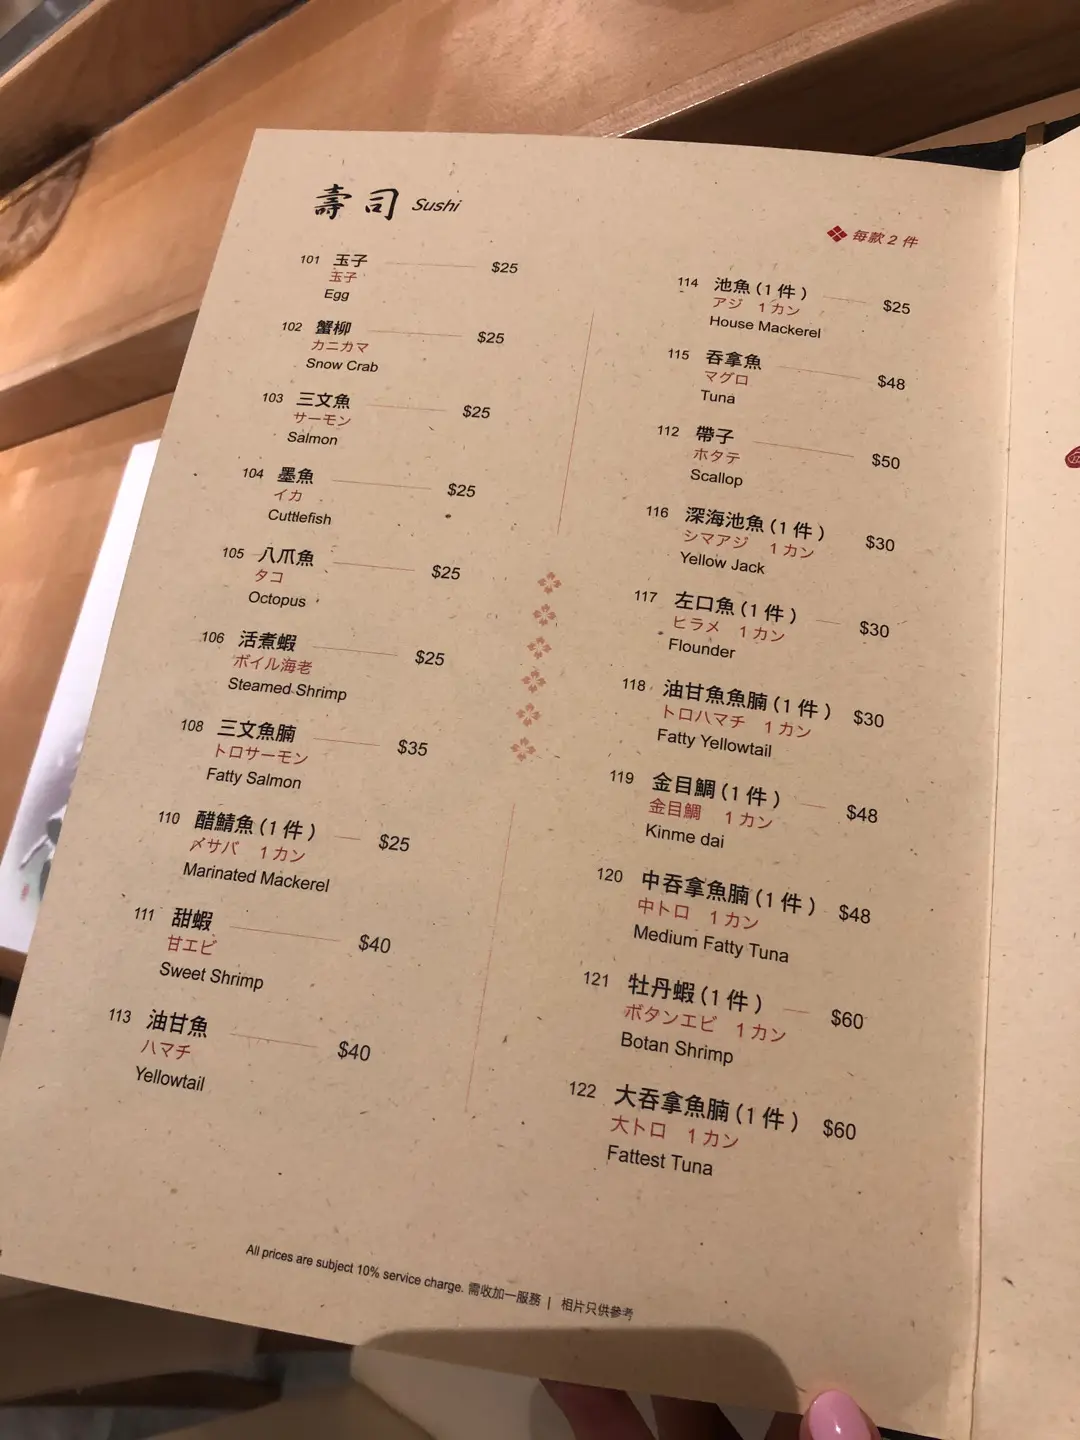 壽司 Sushi
每款 2 件
101 玉子 $25
玉子
Egg
102 蟹柳 $25
カニカマ
Snow Crab
103 三文魚 $25
サーモン
Salmon
104 墨魚 $25
イカ
Cuttlefish
105 八爪魚 $25
タコ
Octopus
106 活煮蝦 $25
ボイル海老
Steamed Shrimp
108 三文魚腩 $35
トロサーモン
Fatty Salmon
110 醋鯖魚 (1 件) $25
〆サバ 1 カン
Marinated Mackerel
111 甜蝦 $40
甘エビ
Sweet Shrimp
113 油甘魚 $40
ハマチ
Yellowtail
114 池魚 (1 件) $25
アジ 1 カン
House Mackerel
115 吞拿魚 $48
マグロ
Tuna
112 帶子 $50
ホタテ
Scallop
116 深海池魚 (1 件) $30
シマアジ 1 カン
Yellow Jack
117 左口魚 (1 件) $30
ヒラメ 1 カン
Flounder
118 油甘魚魚腩 (1 件) $30
トロハマチ 1 カン
Fatty Yellowtail
119 金目鯛 (1 件) $48
金目鯛 1 カン
Kinme dai
120 中吞拿魚腩 (1 件) $48
中トロ 1 カン
Medium Fatty Tuna
121 牡丹蝦 (1 件) $60
ボタンエビ 1 カン
Botan Shrimp
122 大吞拿魚腩 (1 件) $60
大トロ 1 カン
Fattest Tuna
All prices are subject 10% service charge. 需收加一服務 | 相片只供參考